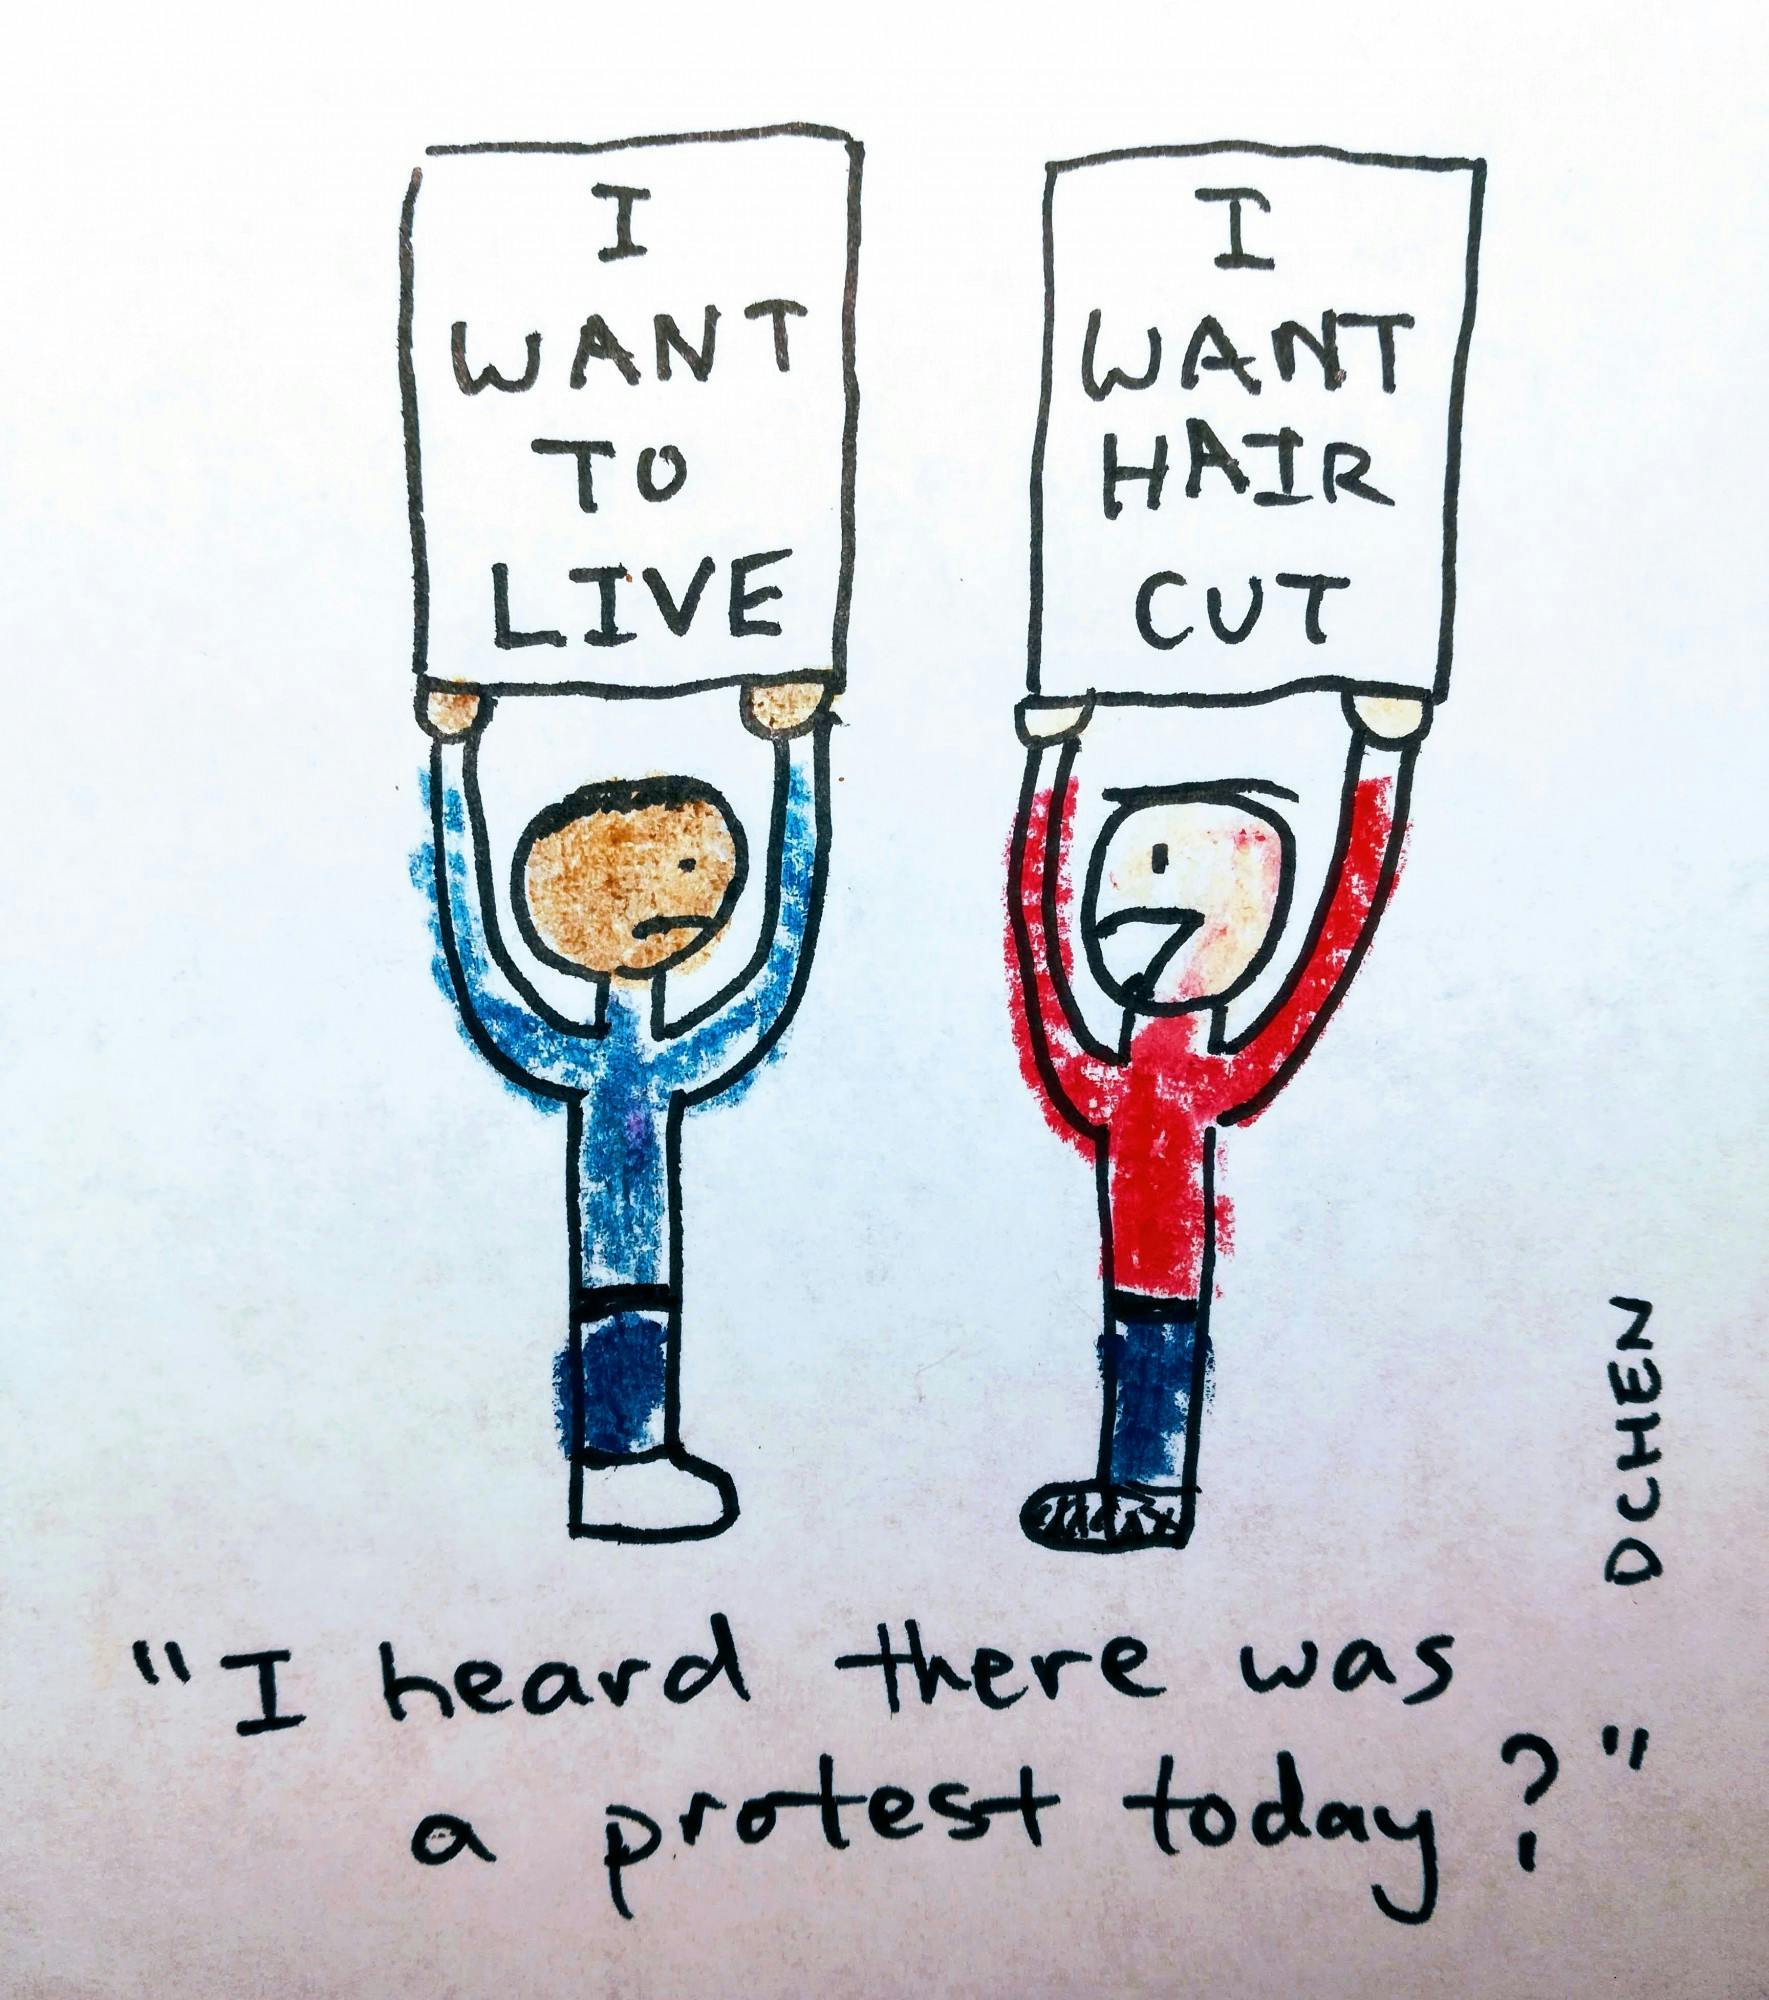 I
WANT
TO
LIVE
I
WANT
HAIR
CUT
DCHEN
"I heard there was
a protest today?"